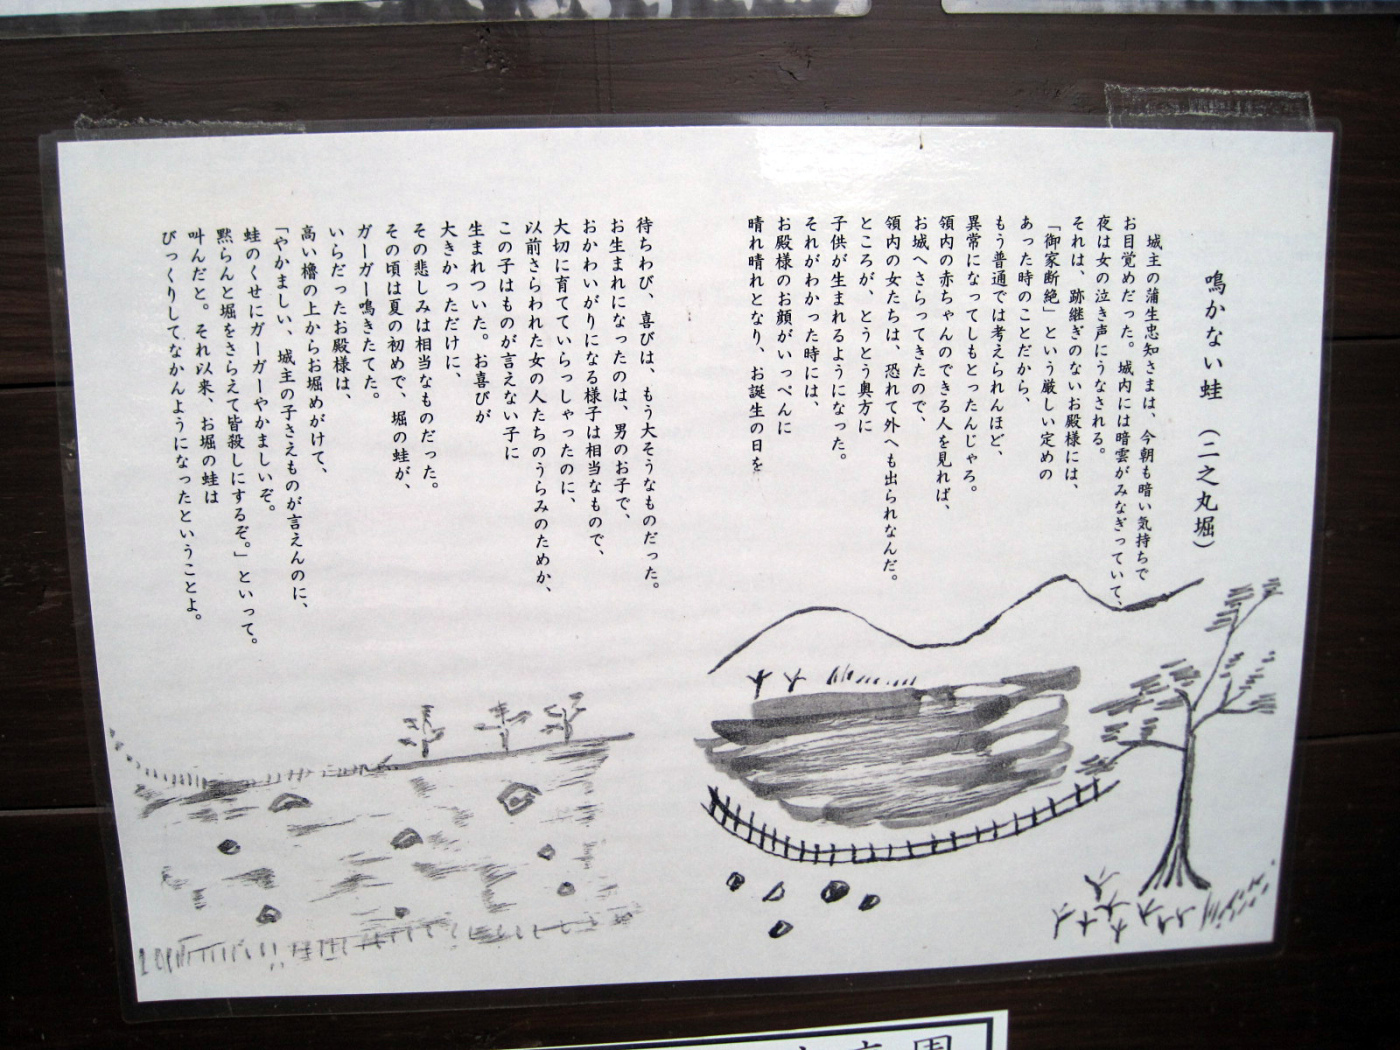 鳴かない蛙 (二之丸堀)
城主の蒲生忠知さまは、今朝も暗い気持ちで
お目覚めだった。城内には暗雲がみなぎっていて、
夜は女の泣き声にうなされる。
それは、跡継ぎのないお殿様には、
「御家断絶」という厳しい定めの
あった時のことだから、
もう普通では考えられんほど、
異常になってしもとったんじゃろ。
領内の赤ちゃんのできる人を見れば、
お城へさらってきたので、
領内の女たちは、恐れて外へも出られなんだ。
ところが、とうとう奥方に
子供が生まれるようになった。
それがわかった時には、
お殿様のお顔がいっぺんに
晴れ晴れとなり、お誕生の日を
待ちわび、喜びは、もう大そうなものだった。
お生まれになったのは、男のお子で、
おかわいがりになる様子は相当なもので、
大切に育てていらっしゃったのに、
以前さらわれた女の人たちのうらみのためか、
この子はものが言えない子に
生まれついた。お喜びが
大きかっただけに、
その悲しみは相当なものだった。
その頃は夏の初めで、堀の蛙が、
ガーガー鳴きたてた。
いらだったお殿様は、
高い櫓の上からお堀めがけて、
「やかましい、城主の子さえものが言えんのに、
蛙のくせにガーガーやかましいぞ。
黙らんと堀をさらえて皆殺しにするぞ。」といって。
叫んだと。それ以来、お堀の蛙は
びっくりしてなかんようになったということよ。